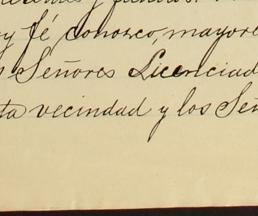 y fé conozco, mayore
s Señores Licenciad
ta vecindad y los Señ